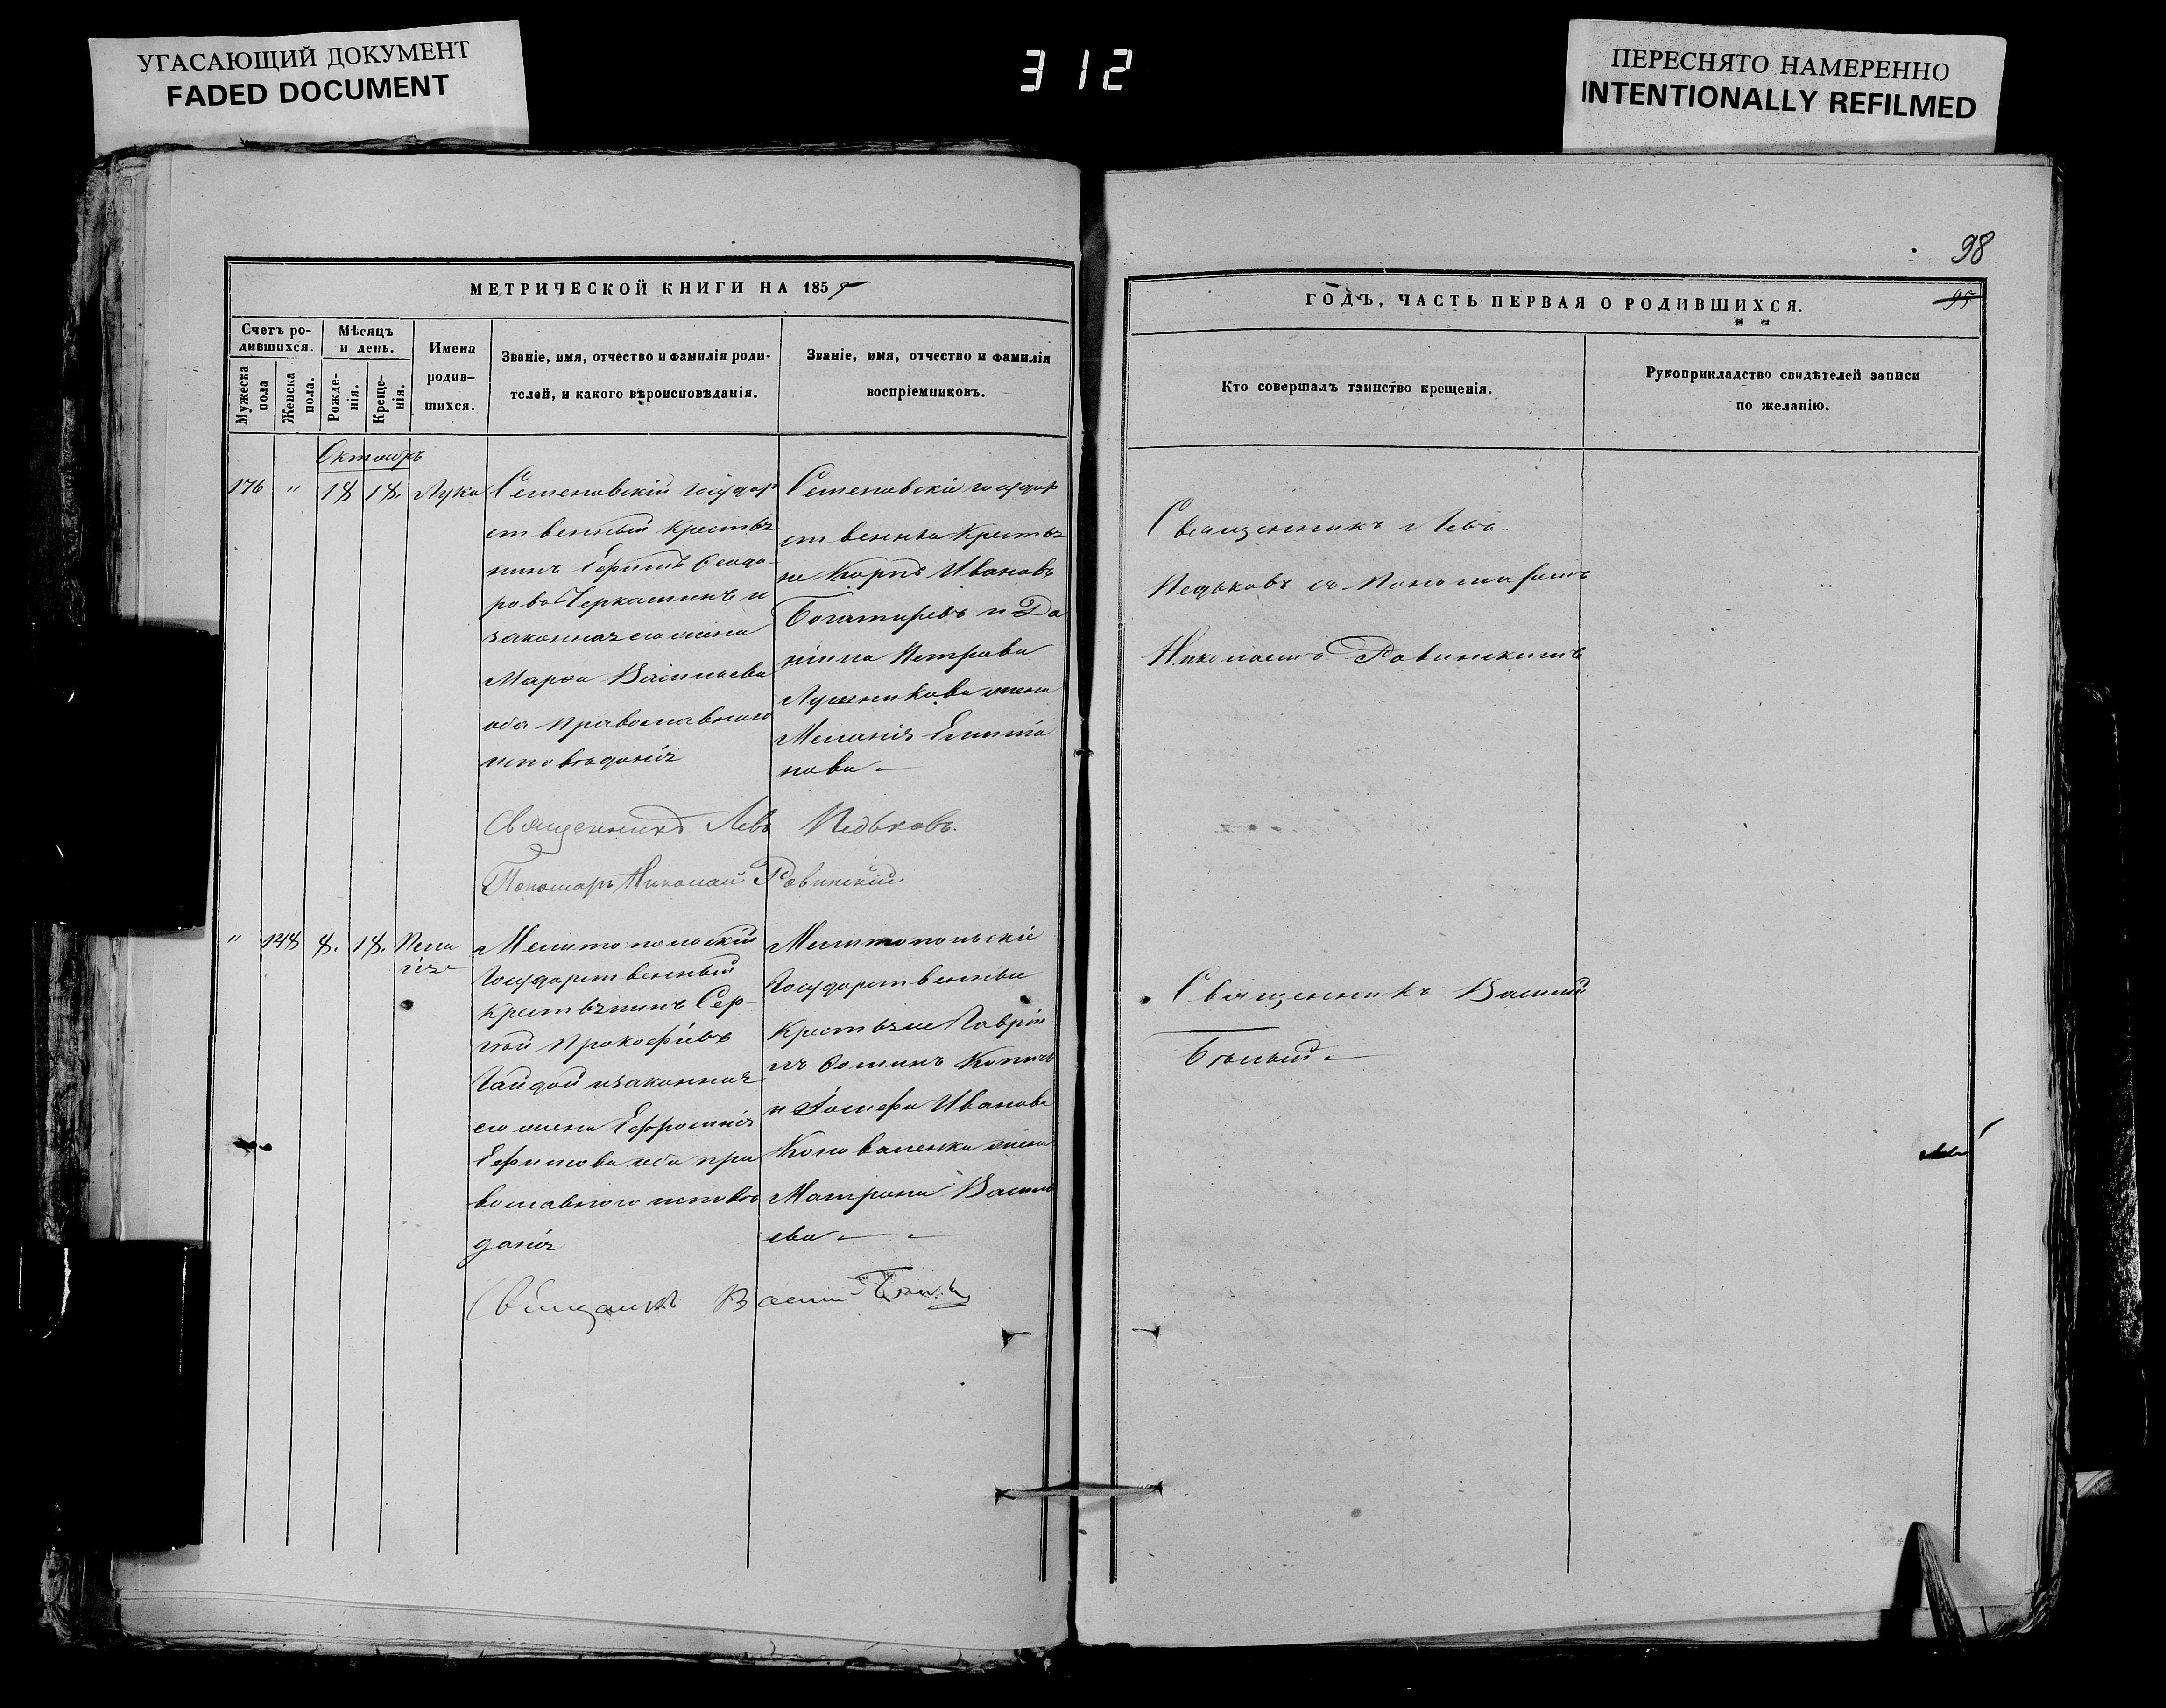 УГАСАЮЩИЙ ДОКУМЕНТ
FADED DOCUMENT
312
ПЕРЕСНЯТО НАМЕРЕННО
INTENTIONALLY REFILMED
98
95
МЕТРИЧЕСКОЙ КНИГИ НА 185
ГОДЪ, ЧАСТЬ ПЕРВАЯ О РОДИВШИХСЯ.
Счетъ ро-
дившихся.
Мужеска
пола
Женска
пола.
Мѣсяцъ
и день.
Рожде-
нія.
Креще-
нія.
Имена
родив-
шихся.
Званіе, имя, отчество и фамилія роди-
телей, и какого вѣроисповѣданія.
Званіе, имя, отчество и фамилія
воспріемниковъ.
Кто совершалъ таинство крещенія.
Рукоприкладство свидѣтелей записи
по желанію.
Октябрь
176 " 18 18. Лука
Семеновскій государ
ственный крестья
нинъ Ефимъ Феодо
ровъ Черкашинъ и
законная его жена
Марфа Васильева
оба православнаго
исповѣданія
Семеновскіе государ
ственные Крестья
не Карпъ Ивановъ
Богатыревъ и Да
ніила Петрова
Лушникова жена
Меланія
нова
Священникъ Левъ
Педьковъ съ Пономаремъ
Николаемъ Равинскимъ
Священникъ Левъ Педьковъ.
Пономарь Николай Равинскій.
" 148 8. 18. Пела
гія
Мелитопольскій
Государственный
крестьянинъ Сер-
гѣй Прокофіевъ
Гайдой и законная
его жена Ефросинія
Ефимова оба пра
вославнаго исповѣ
данія
Мелитопольскіе
Государственные
Крестьяне Гавріи
лъ Фоминъ
и Іосифа Иванова
Коноваленка жена
Матрона Василь
ева
Священникъ Василій
Бѣлый
Священникъ Василій Бѣлый